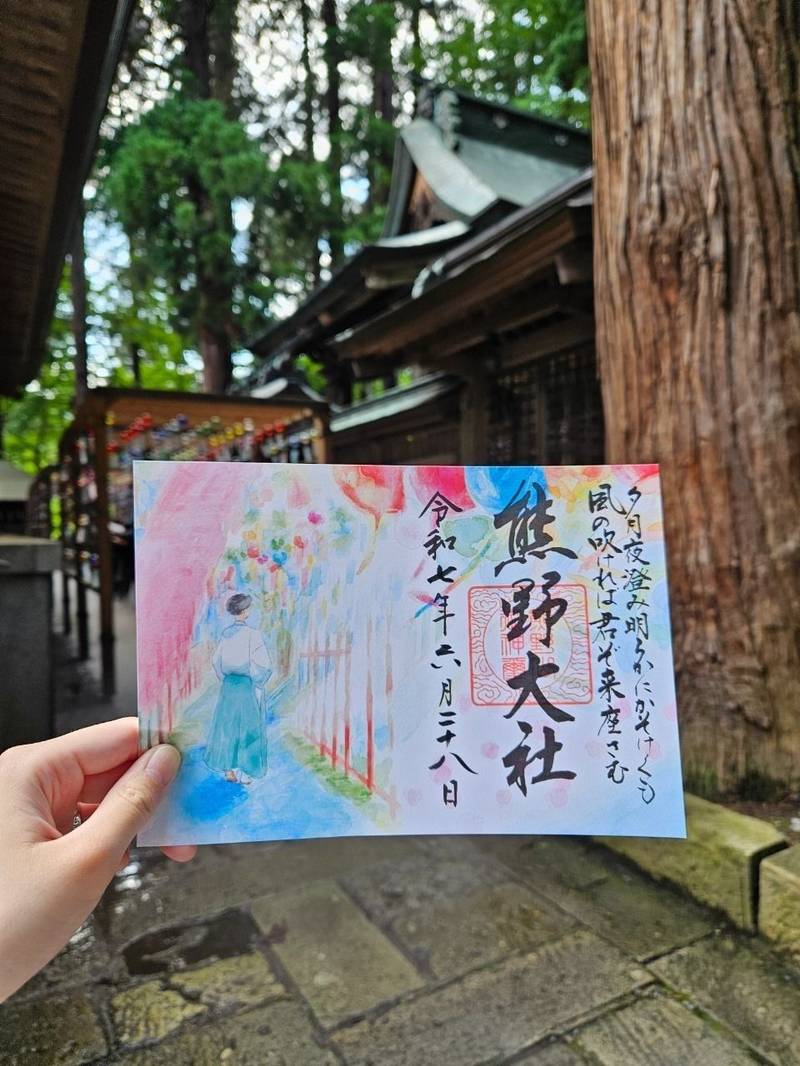 夕月夜澄み明らかにかそけくも
風の吹ければ君ぞ来座さむ
熊野大社
令和七年六月二十八日